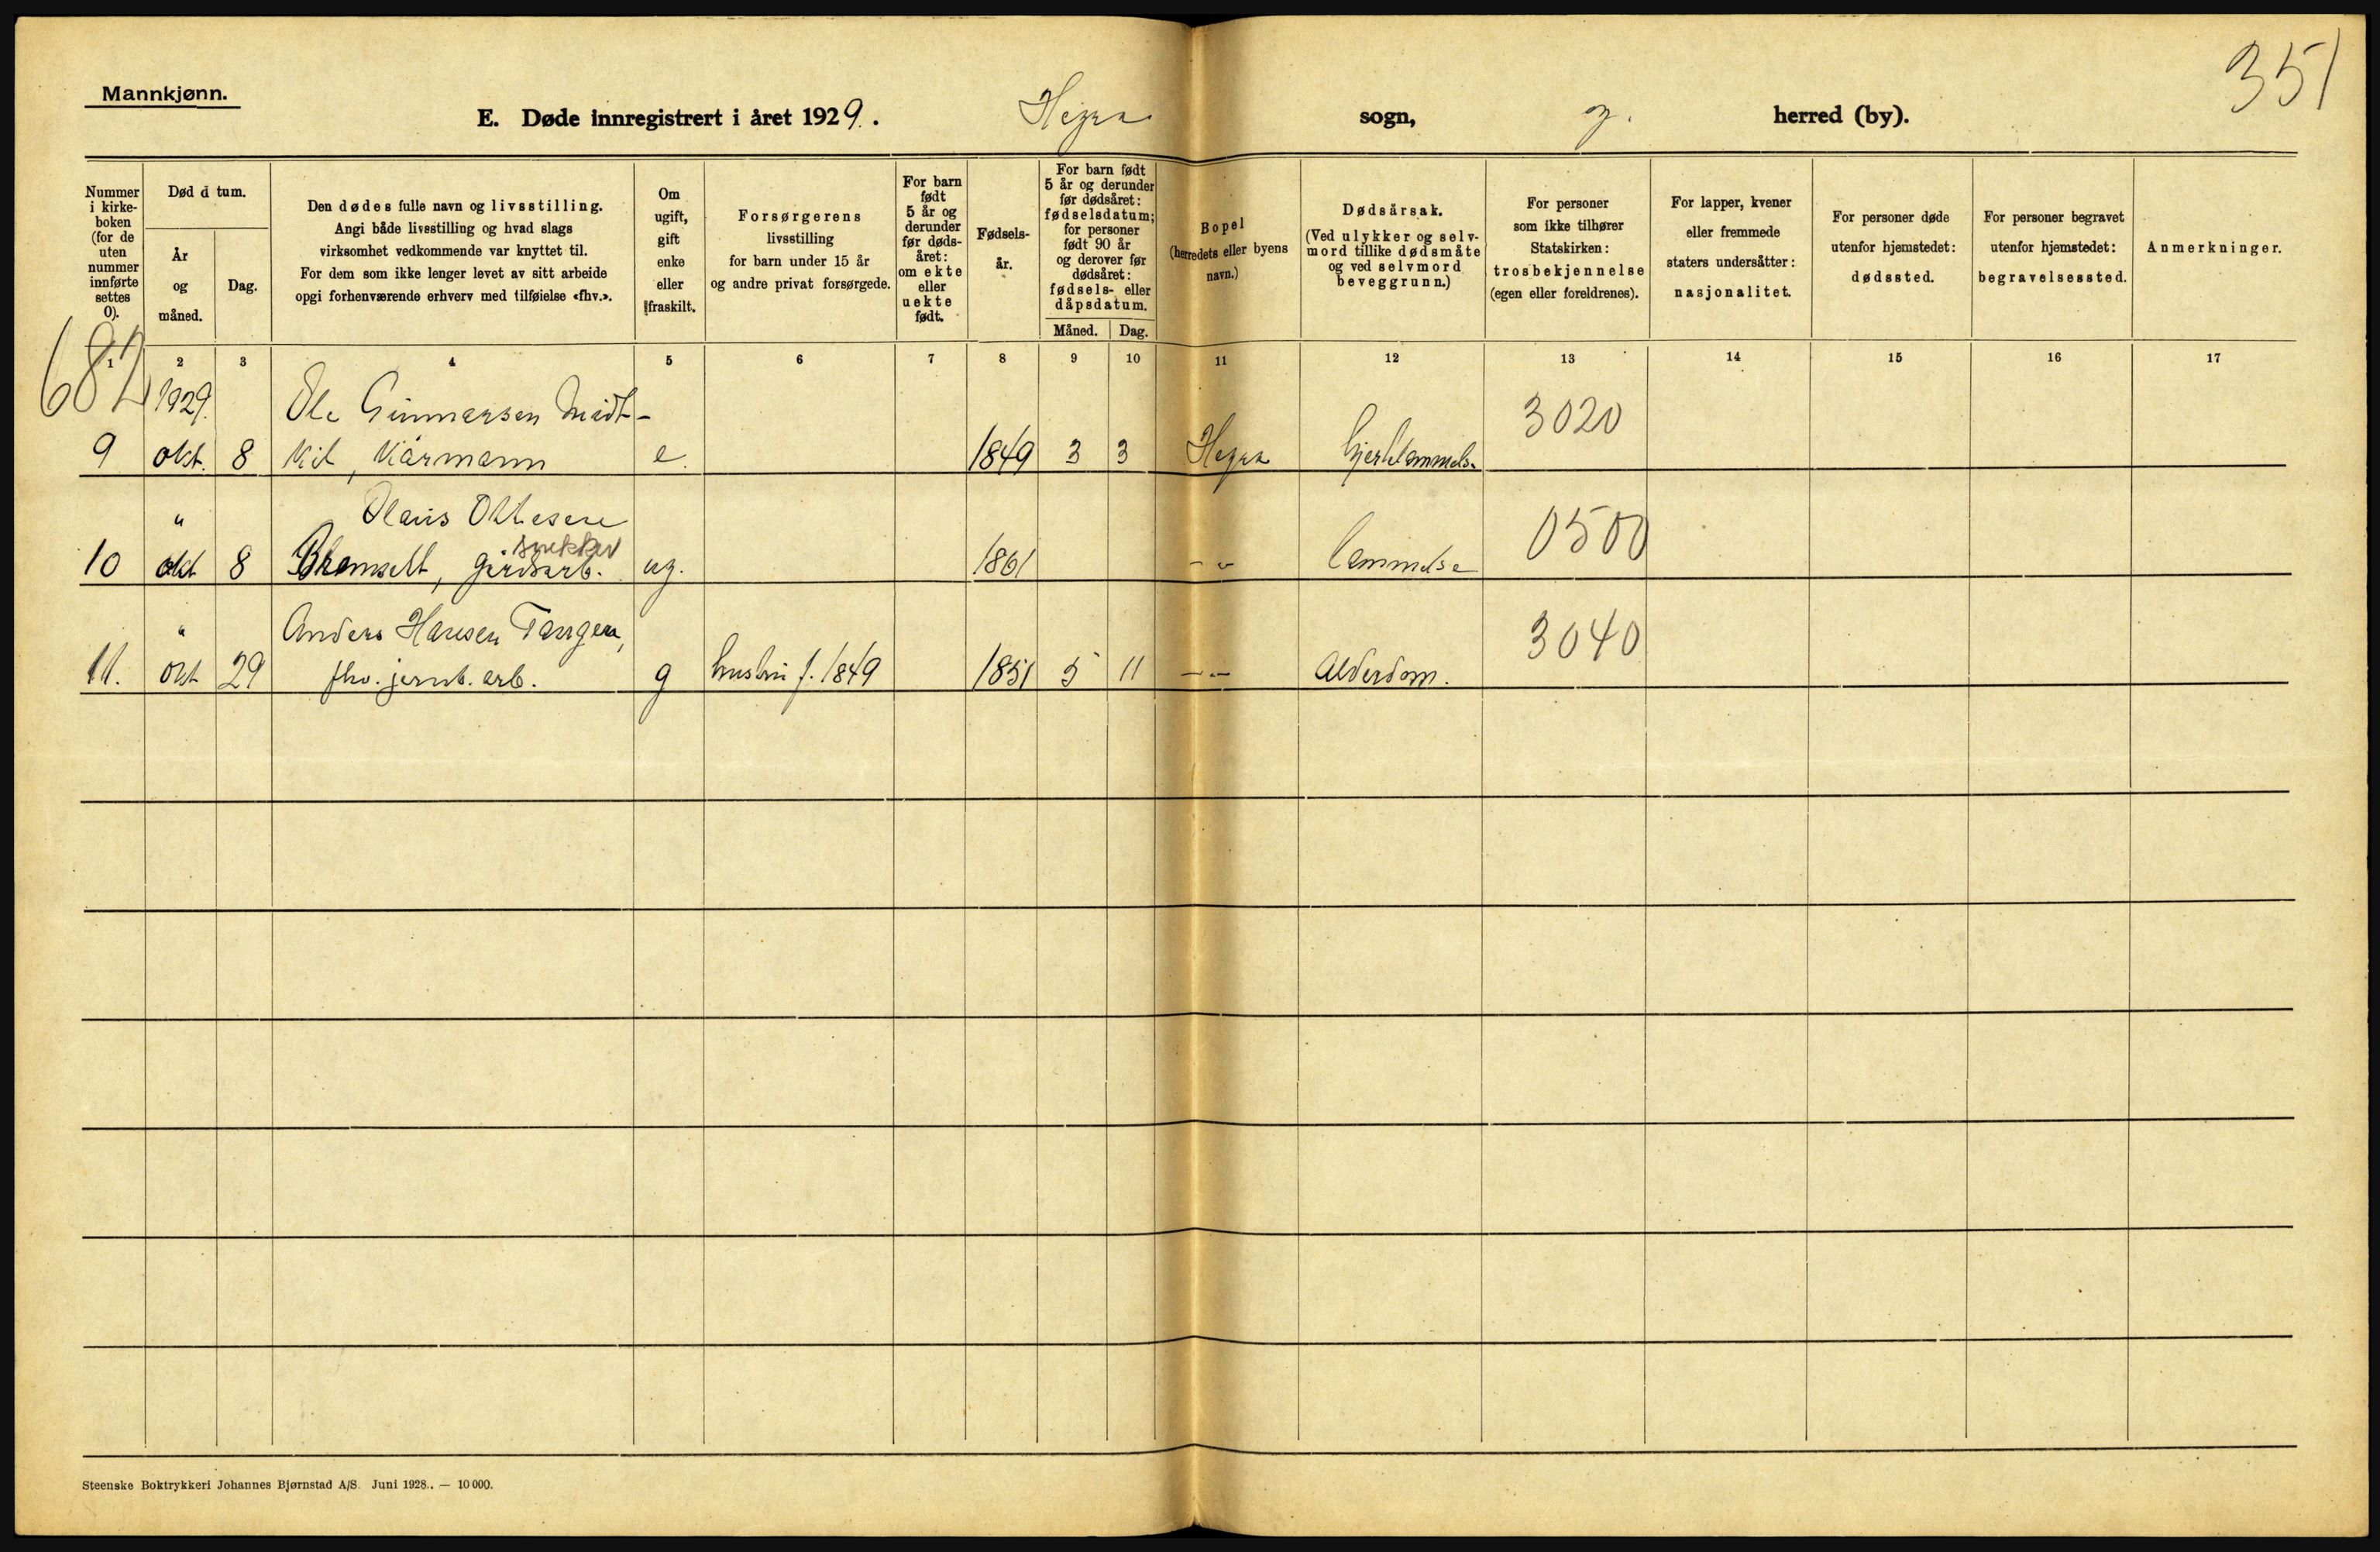 351
Mannkjønn.
E. Døde innregistrert i året 1929. Hegra sogn, herred (by).
Nummer
i kirke-
boken
(for de
uten
nummer
innførte
settes
0).
Død d tum.
År
og
måned.
Dag.
Den dødes fulle navn og livsstilling.
Angi både livsstilling og hvad slags
virksomhet vedkommende var knyttet til.
For dem som ikke lenger levet av sitt arbeide
opgi forhenværende erhverv med tilføielse «fhv.».
Om
ugift,
gift
enke
eller
fraskilt.
Forsørgerens
livsstilling
for barn under 15 år
og andre privat forsørgede.
For barn
født
5 år og
derunder
før døds-
året:
om ekte
eller
uekte
født.
Fødsels-
år.
For barn født
5 år og derunder
før dødsåret:
fødselsdatum;
for personer
født 90 år
og derover før
dødsåret:
fødsels- eller
dåpsdatum.
Måned. Dag.
Bopel
(herredets eller byens
navn.)
Dødsårsak.
(Ved ulykker og selv-
mord tillike dødsmåte
og ved selvmord
beveggrunn.)
For personer
som ikke tilhører
Statskirken:
trosbekjennelse
(egen eller foreldrenes).
For lapper, kvener
eller fremmede
staters undersåtter:
nasjonalitet.
For personer døde
utenfor hjemstedet:
dødssted.
For personer begravet
utenfor hjemstedet:
begravelsessted.
Anmerkninger.
1 2 3 4 5 6 7 8 9 10 11 12 13 14 15 16 17
1929. Ole Gunnarsen Midt- 3020
9 okt. 8 kil, kårmann e. 1849 3 3 Hegra hjertelammels.
" Olaus Ottesen 0500
snekker
10 okt 8 gårdsarb. ug. 1861 - " - lammelse
" Anders Hansen Tangen, 3040
11. okt 29 fhv. jernb. arb. g hustru f. 1849 1851 5 11 - " - Alderdom.
Steenske Boktrykkeri Johannes Bjørnstad A/S. Juni 1928.. — 10 000.